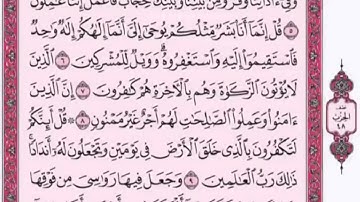 وَفِىٓ ءَاذَانِنَا وَقْرٌ وَمِنۢ بَيْنِنَا وَبَيْنِكَ حِجَابٌ فَٱعْمَلْ إِنَّنَا عَٰمِلُونَ
٥ قُلْ إِنَّمَآ أَنَا۠ بَشَرٌ مِّثْلُكُمْ يُوحَىٰٓ إِلَىَّ أَنَّمَآ إِلَٰهُكُمْ إِلَٰهٌ وَٰحِدٌ
فَٱسْتَقِيمُوٓا۟ إِلَيْهِ وَٱسْتَغْفِرُوهُ ۗ وَوَيْلٌ لِّلْمُشْرِكِينَ ٦ ٱلَّذِينَ
لَا يُؤْتُونَ ٱلزَّكَوٰةَ وَهُم بِٱلْءَاخِرَةِ هُمْ كَٰفِرُونَ ٧ إِنَّ ٱلَّذِينَ
ءَامَنُوا۟ وَعَمِلُوا۟ ٱلصَّٰلِحَٰتِ لَهُمْ أَجْرٌ غَيْرُ مَمْنُونٍ ٨ ۞ قُلْ أَئِنَّكُمْ
لَتَكْفُرُونَ بِٱلَّذِى خَلَقَ ٱلْأَرْضَ فِى يَوْمَيْنِ وَتَجْعَلُونَ لَهُۥٓ أَندَادًا ۚ
ذَٰلِكَ رَبُّ ٱلْعَٰلَمِينَ ٩ وَجَعَلَ فِيهَا رَوَٰسِىَ مِن فَوْقِهَا
نصف
الحزب
٤٨